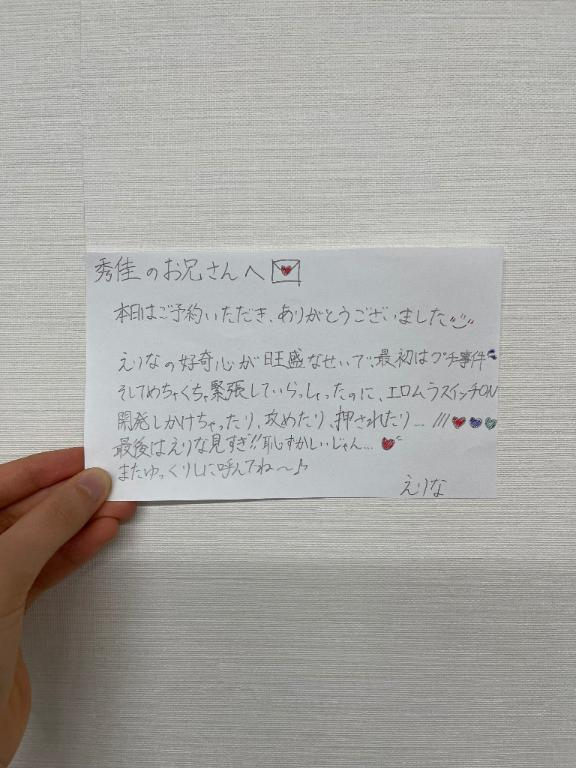 秀佳のお兄さんへ
本日はご予約いただき、ありがとうございました
えりなの好奇心が旺盛なせいで、最初はプチ事件
そしてめちゃくちゃ緊張していらっしゃったのに、エロムラスイッチON
開発しかけちゃったり、攻めたり、押されたり… ///
最後はえりな見すぎ!!恥ずかしいじゃん…
またゆっくりしに呼んでね〜♪
えりな